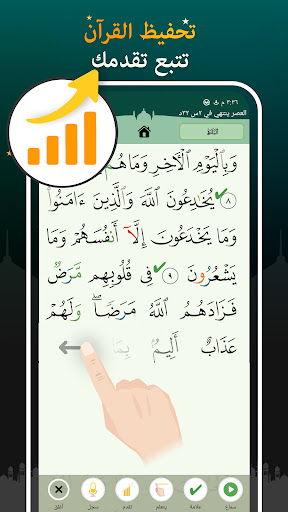 تحفيظ القرآن
تتبع تقدمك
٣:٣٦ م
العصر ينتهي في ٢س ٣٢د
البَقَرَة
وَبِٱلۡيَوۡمِ ٱلۡأٓخِرِ وَمَا هُم
٨ يُخَٰدِعُونَ ٱللَّهَ وَٱلَّذِينَ ءَامَنُواْ
وَمَا يَخۡدَعُونَ إِلَّآ أَنفُسَهُمۡ وَمَا
يَشۡعُرُونَ ٩ فِي قُلُوبِهِم مَّرَضٞ
فَزَادَهُمُ ٱللَّهُ مَرَضٗاۖ وَلَهُمۡ
عَذَابٌ أَلِيمُۢ بِمَا
سماع علامة يتعلم تقدم سجل أغلق